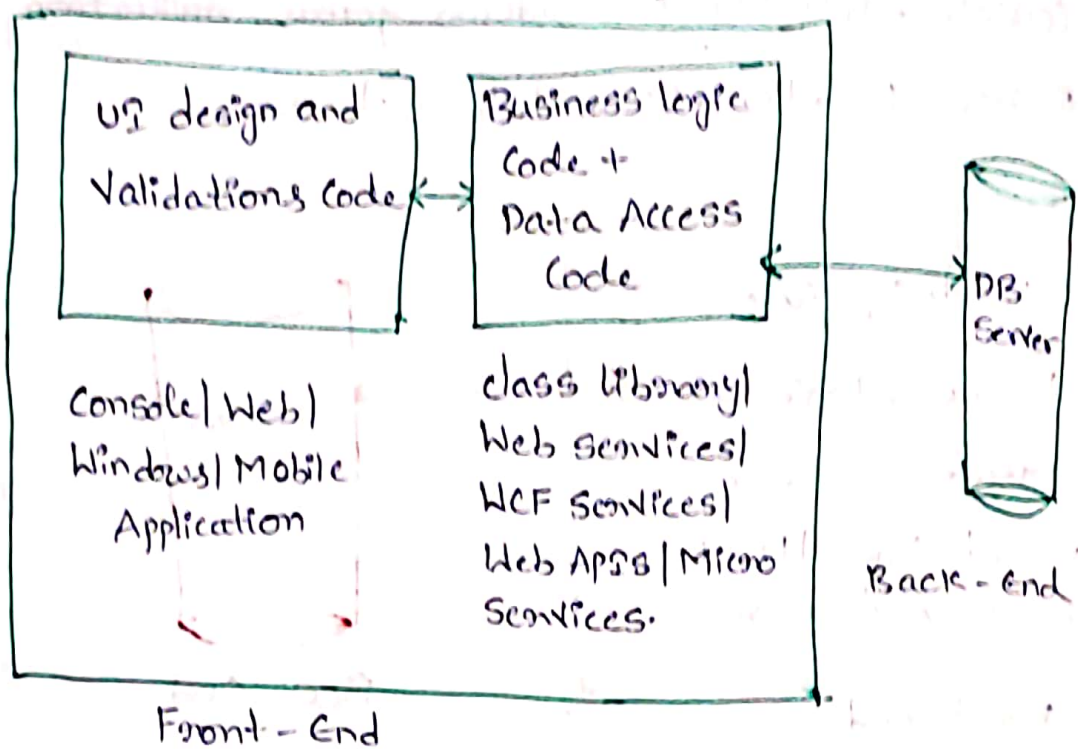 UI design and
Validations Code
Business logic
Code +
Data Access
Code
DB
Server
Console| Web|
Windows| Mobile
Application
class library|
Web services|
WCF Services|
Web APIs | Micro
Services.
Back-End
Front-End